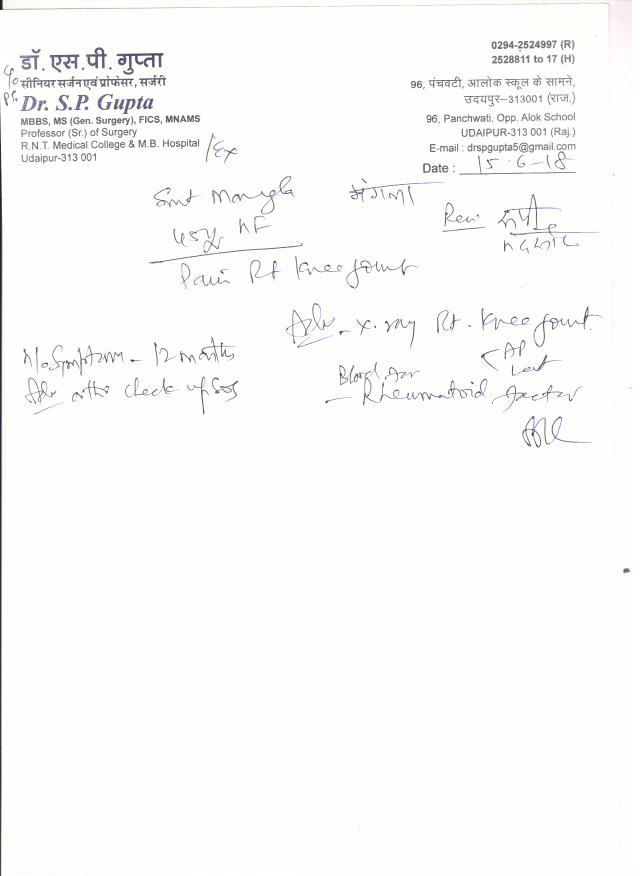 डॉ. एस.पी. गुप्ता
सीनियर सर्जन एवं प्रोफेसर, सर्जरी
Dr. S.P. Gupta
MBBS, MS (Gen. Surgery), FICS, MNAMS
Professor (Sr.) of Surgery
R.N.T. Medical College & M.B. Hospital
Udaipur-313 001
/Ex
0294-2524997 (R)
2528811 to 17 (H)
96, पंचवटी, आलोक स्कूल के सामने,
उदयपुर–313001 (राज.)
96, Panchwati, Opp. Alok School
UDAIPUR-313 001 (Raj.)
E-mail : drspgupta5@gmail.com
Date : 15-6-18
Smt Mangla मंगला
Pain Rt Knee joint
Adv - x-ray Rt. Knee joint
AP
Lat
H/o Symptom - 12 months
Adv ortho check up SOS
Blood for
- Rheumatoid factor